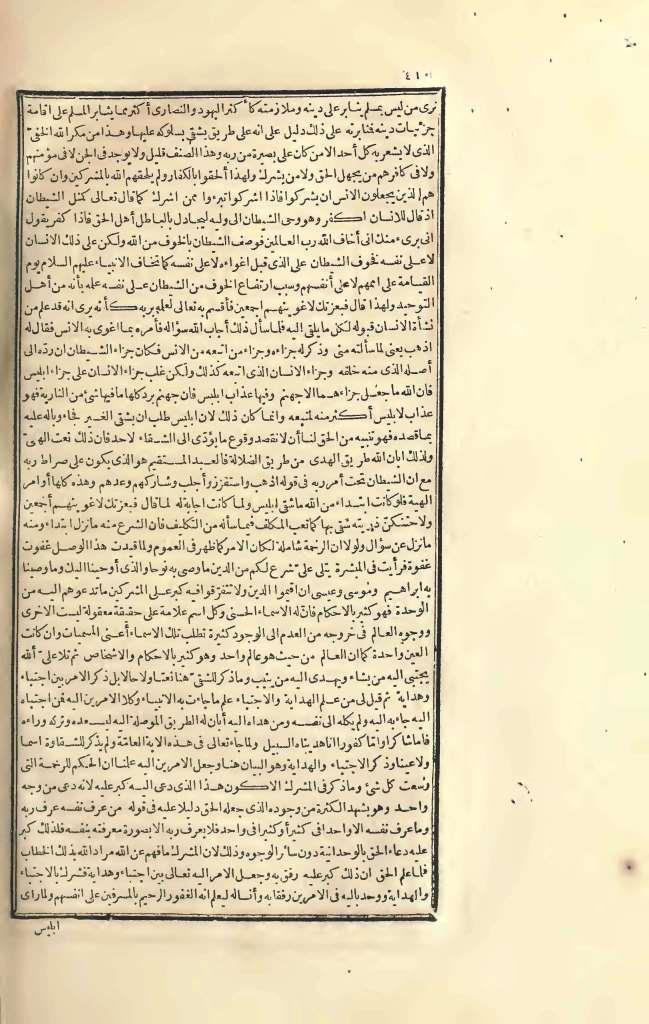 ٤١٠
نرى من ليس بمسلم يثابر على دينه وملازمته كأكثر اليهود والنصارى أكثر مما يثابر المسلم على اقامة
جزئيات دينه فمثابرته على ذلك دليل على انه على طريق يشقى بسلوكه عليها وهذا من مكر الله الخفىّ
الذى لا يشعر به كل أحد الا من كان على بصيرة من ربه وهذا الصنف قليل ولا يوجد فى الجن لا فى مؤمنهم
ولا فى كافرهم من يجهل الحق ولا من يشرك ولهذا ألحقوا بالكفار ولم يلحقهم الله بالمشركين وان كانوا
هم الذين يجعلون الانس ان يشركوا فاذا اشركوا تبرءوا ممن اشرك كما قال تعالى كمثل الشيطان
اذ قال للانسان اكفر وهو وحى الشيطان الى وليه ليجادل بالباطل أهل الحق فاذا كفر يقول
انى برىء منك انى أخاف الله رب العالمين فوصف الشيطان بالخوف من الله ولكن على ذلك الانسان
لا على نفسه فخوف الشيطان على الذى قبل اغواءه لا على نفسه كما تخاف الانبياء عليهم السلام يوم
القيامة على اممهم لا على أنفسهم وسبب ارتفاع الخوف من الشيطان على نفسه علمه بأنه من أهل
التوحيد ولهذا قال فبعزتك لاغوينهم اجمعين فأقسم به تعالى لعلمه بربه كأنه يرى انه قد علم من
نشأة الانسان قبوله لكل ما يلقى اليه فلما سأل ذلك أجاب الله سؤاله فأمره بما اغوى به الانس فقال له
اذهب يعنى لما سألته منى وذكر له جزاءه وجزاء من اتبعه من الانس فكان جزاء الشيطان ان ردّه الى
أصله الذى منه خلقه وجزاء الانسان الذى اتبعه كذلك ولكن غلب جزاء الانسان على جزاء ابليس
فان الله ما جعل جزاءهما الا جهنم وفيها عذاب ابليس فان جهنم برد كلها ما فيها شئ من النارية فهو
عذاب لابليس أكثر منه لمتبعه وانما كان ذلك لان ابليس طلب ان يشقى الغير فجاء وباله عليه
بما قصده فهو تنبيه من الحق لنا أن لا نقصد وقوع ما يؤدّى الى الشقاء لاحد فان ذلك نعت الهىّ
ولذلك ابان الله طريق الهدى من طريق الضلالة فالعبد المستقيم هو الذى يكون على صراط ربه
مع ان الشيطان تحت أمر ربه فى قوله اذهب واستفزز وأجلب وشاركهم وعدهم وهذه كلها أوامر
الهية فلو كانت ابتداء من الله ما شقى ابليس ولما كانت اجابة له لما قال فبعزتك لاغوينهم أجمعين
ولاحتنكنّ ذريته شقى بها كما تعب المكلف فيما سأله من التكليف فان الشرع منه ما نزل ابتداء ومنه
ما نزل عن سؤال ولولا ان الرحمة شاملة لكان الامر كما ظهر فى العموم ولما قيدت هذا الوصل غفوت
غفوة فرأيت فى المبشرة يتلى علىّ شرع لكم من الدين ما وصى به نوحا والذى أوحينا اليك وما وصينا
به ابراهيم وموسى وعيسى ان اقيموا الدين ولا تتفرّقوا فيه كبر على المشركين ما تدعوهم اليه من
الوحدة فهو كثير بالاحكام فان له الاسماء الحسنى وكل اسم علامة على حقيقة معقولة ليست الاخرى
ووجوه العالم فى خروجه من العدم الى الوجود كثيرة تطلب تلك الاسماء أعنى المسميات وان كانت
العين واحدة كما ان العالم من حيث هو عالم واحد وهو كثير بالاحكام والاشخاص ثم تلا علىّ الله
يجتبى اليه من يشاء ويهدى اليه من ينيب وما ذكر للشقى هنا نعتا ولا حالا بل ذكر الامر بين اجتباء
وهداية ثم قيل لى من علم الهداية والاجتباء علم ما جاءت به الانبياء وكلا الامرين اليه فمن اجتباه
اليه جاء به اليه ولم يكله الى نفسه ومن هداه اليه أبان له الطريق الموصلة اليه ليسعده وتركه ورأيه
فاما شاكرا واما كفورا انا هديناه السبيل ولما جاء تعالى فى هذه الآية العامّة ولم يذكر للشقاوة اسما
ولا عينا وذكر الاجتباء والهداية وهو البيان هنا وجعل الامرين اليه علمنا ان الحكم للرحمة التى
وسعت كل شئ وما ذكر فى المشرك الا كون هذا الذى دعى اليه كبر عليه لانه دعى من وجه
واحد وهو يشهد الكثرة من وجوده الذى جعله الحق دليلا عليه فى قوله من عرف نفسه عرف ربه
وما عرف نفسه الا واحدا فى كثير أو كثيرا فى واحد فلا يعرف ربه الا بصورة معرفته بنفسه فلذلك كبر
عليه دعاء الحق بالوحدانية دون سائر الوجوه وذلك لان المشرك ما فهم عن الله مراد الله بذلك الخطاب
فلما علم الحق ان ذلك كبر عليه رفق به وجعل الامر اليه تعالى بين اجتباء وهداية فشرك بالاجتباء
والهداية ووحد باليه فى الامرين رفقا به وأنسا له ليعلم انه الغفور الرحيم بالمسرفين على انفسهم ولما رأى
ابليس